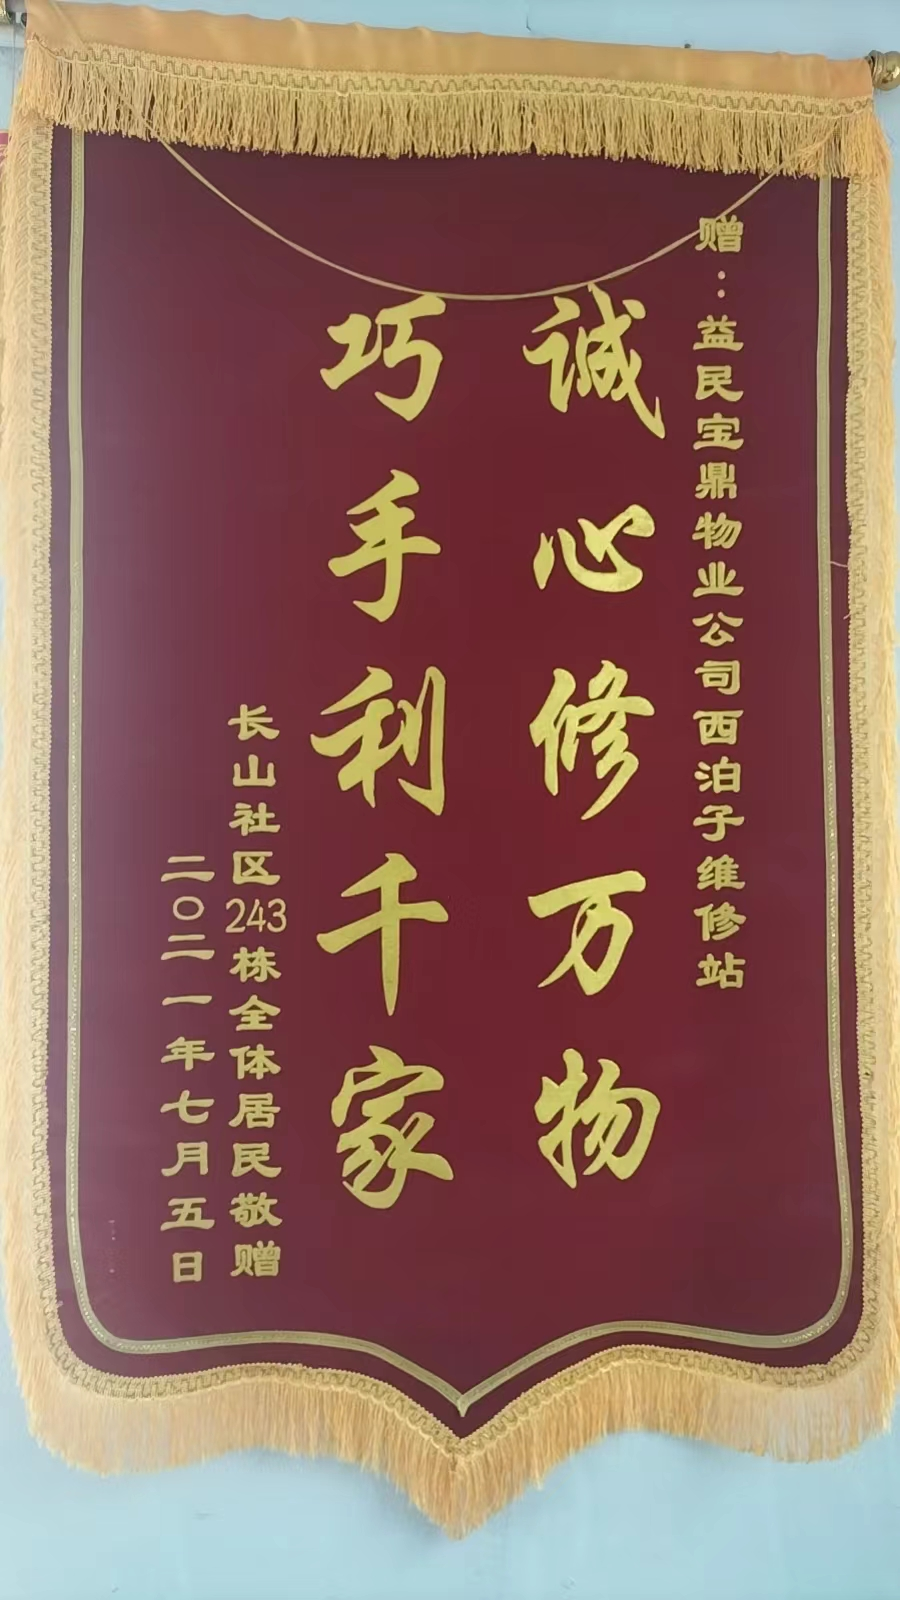 赠：益民宝鼎物业公司西泊子维修站
诚心修万物
巧手利千家
长山社区243栋全体居民敬赠
二〇二一年七月五日